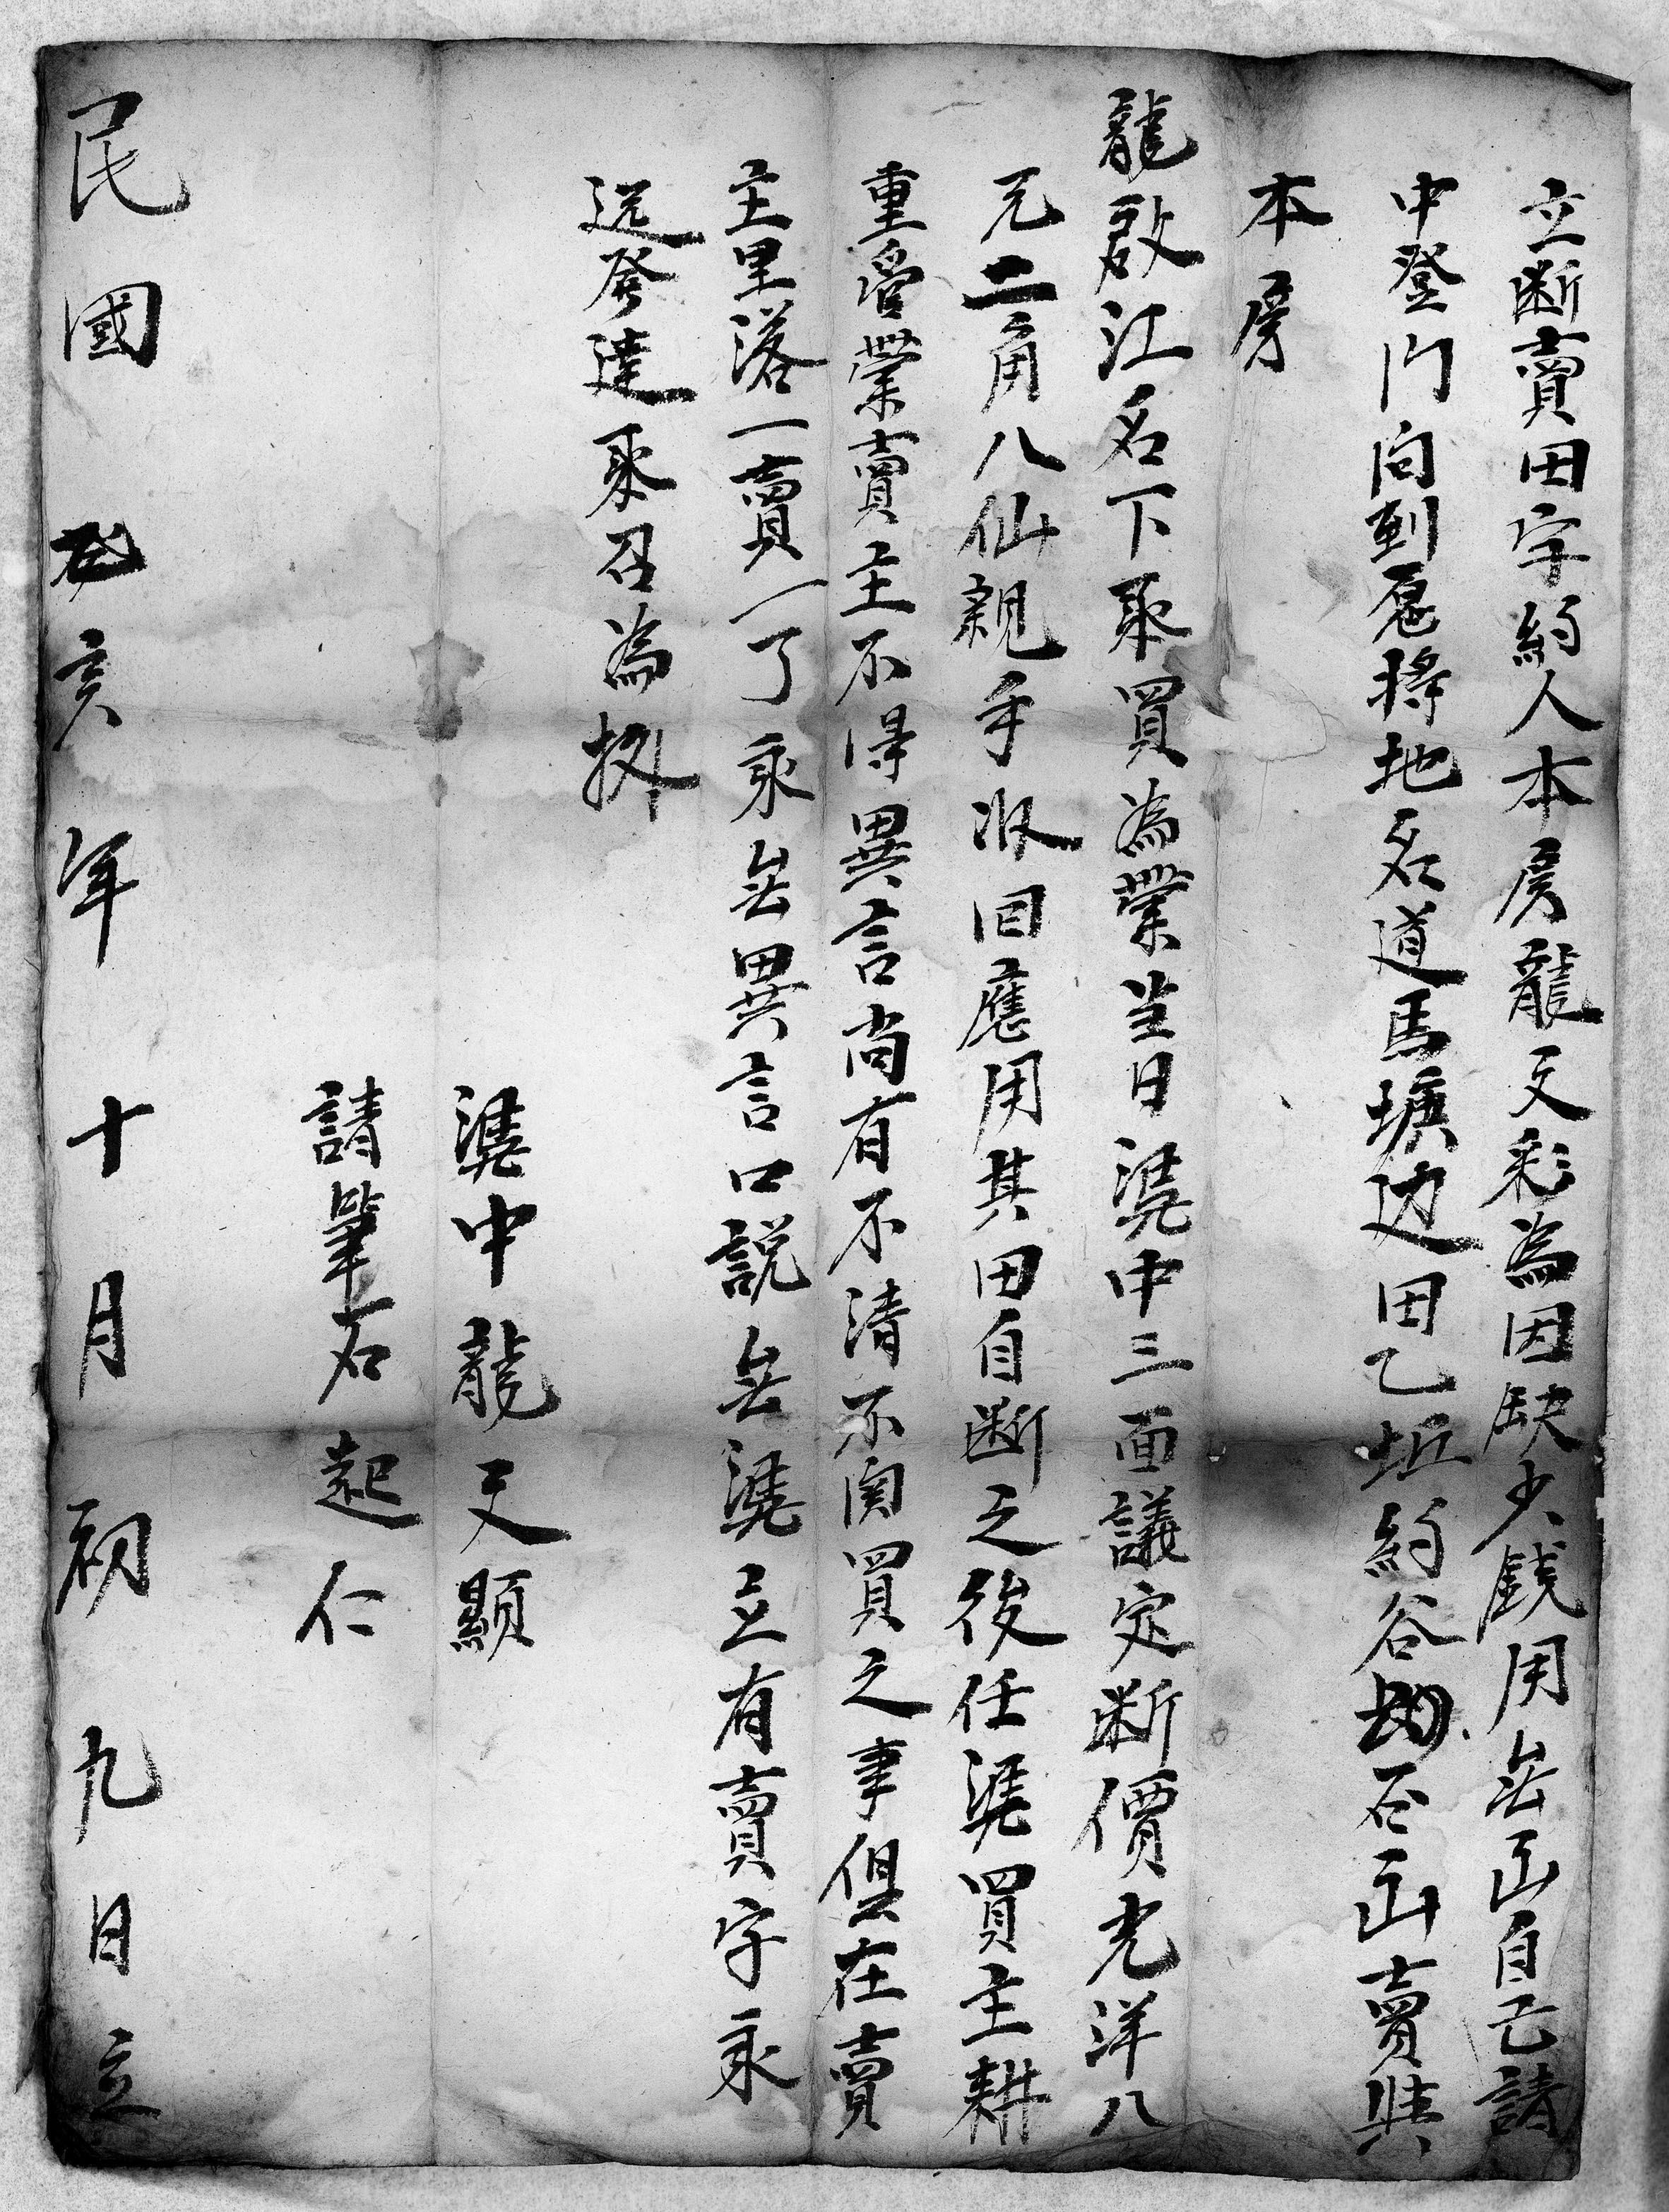 立断賣田字約人本房龍文彩為因缺少錢用無山自己請
中登門问到愿將地名道馬塘边田乙坵約谷四石山賣與
本房
龍啟江名下承買為業当日憑中三面議定断價光洋八
元二角八仙親手收囬應用其田自断之後任憑買主耕
重管業賣主不得異言尚有不清不関買之事俱在賣
主里落一賣一了永無異言口説無憑立有賣字永
远發達承召為拠
憑中龍文顯
請筆石起仁
民國 亥年十月初九日立